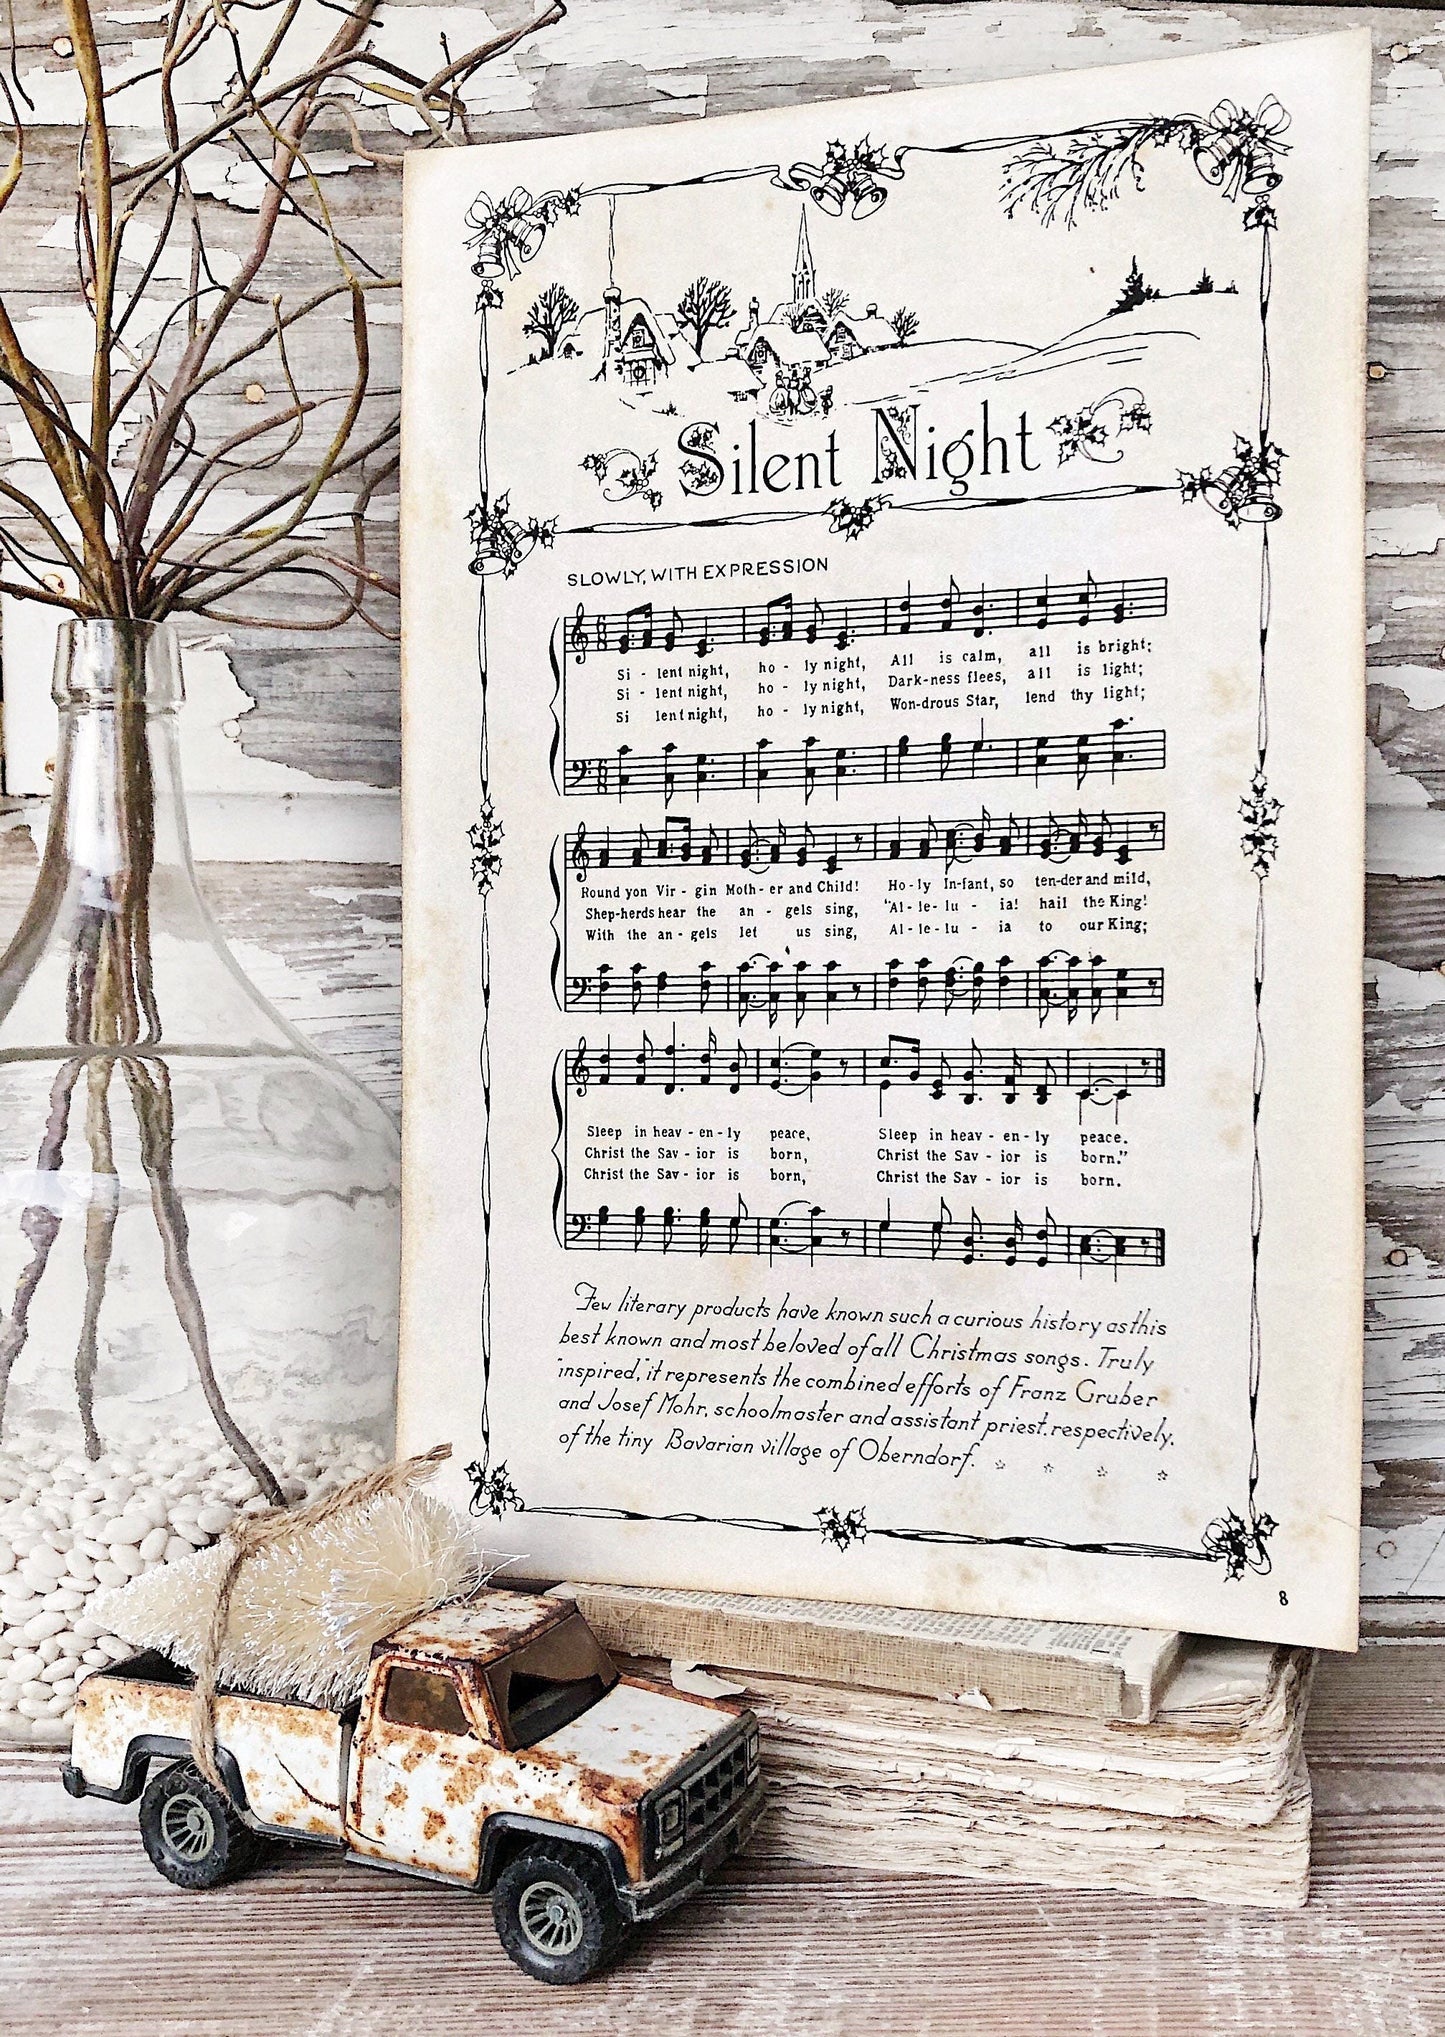 Silent Night
SLOWLY, WITH EXPRESSION
Si - lent night, ho - ly night, All is calm, all is bright;
Si - lent night, ho - ly night, Dark-ness flees, all is light;
Si lent night, ho - ly night, Won-drous Star, lend thy light;
Round yon Vir - gin Moth - er and Child! Ho - ly In-fant, so ten-der and mild,
Shep-herds hear the an - gels sing, "Al - le - lu - ia! hail the King!
With the an - gels let us sing, Al - le - lu - ia to our King;
Sleep in heav - en - ly peace, Sleep in heav - en - ly peace.
Christ the Sav - ior is born, Christ the Sav - ior is born."
Christ the Sav - ior is born, Christ the Sav - ior is born.
Few literary products have known such a curious history as this
best known and most beloved of all Christmas songs. Truly
"inspired," it represents the combined efforts of Franz Gruber
and Josef Mohr, schoolmaster and assistant priest, respectively,
of the tiny Bavarian village of Oberndorf.
8